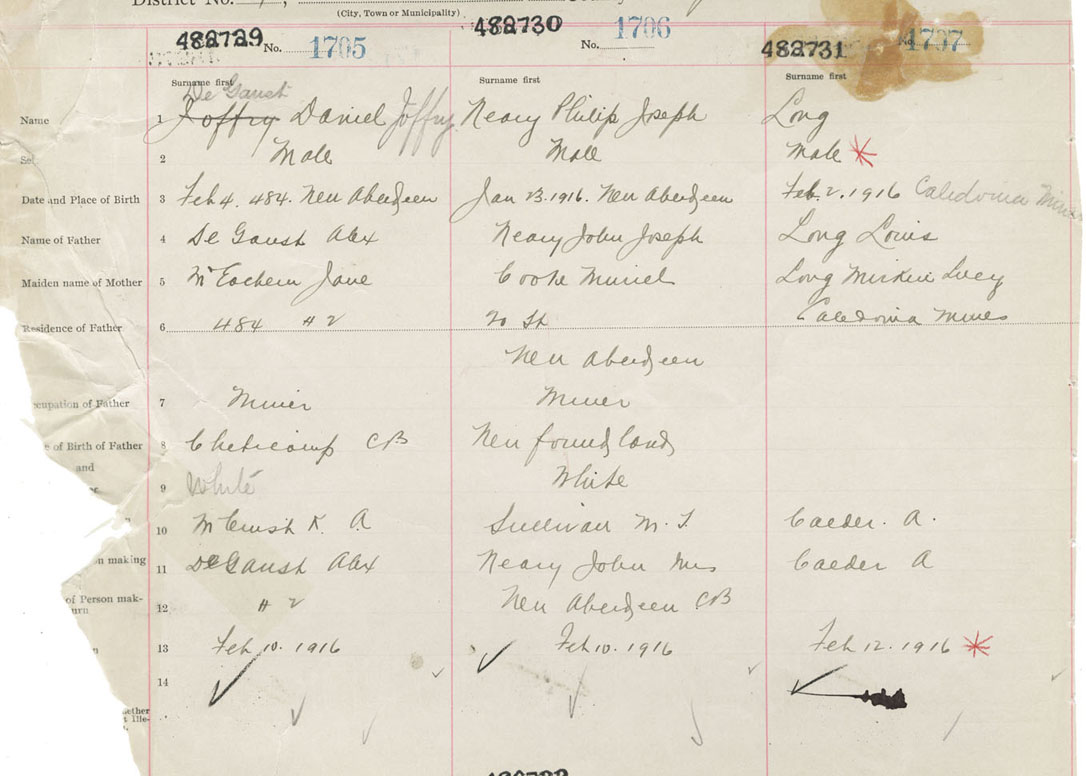 District No.
(City, Town or Municipality)
482729 No. 1705 482730 No. 1706 482731 No. 1737
Surname first Surname first Surname first
De Gaust
Name 1 Joffry Daniel Joffry Neary Philip Joseph Long
Sex 2 Male Male Male
Date and Place of Birth 3 Feb 4. 484. New Aberdeen Jan 23. 1916. New Aberdeen Feb. 2. 1916 Caledonia Mines
Name of Father 4 De Gaust Alex Neary John Joseph Long Louis
Maiden name of Mother 5 McEachern Jane Cooke Muriel Long Lucy
Residence of Father 6 484 #2 20 St Caledonia Mines
New Aberdeen
cupation of Father 7 Miner Miner
e of Birth of Father 8 Cheticamp CB New foundland
and
9 White White
10 K. A Sullivan M. T. Calder. A.
n making 11 DeGaust Alex Neary John Mrs Calder A
of Person mak-
urn 12 #2 New Aberdeen CB
13 Feb 10. 1916 Feb 10. 1916 Feb 12. 1916
14
ether
t Ille-